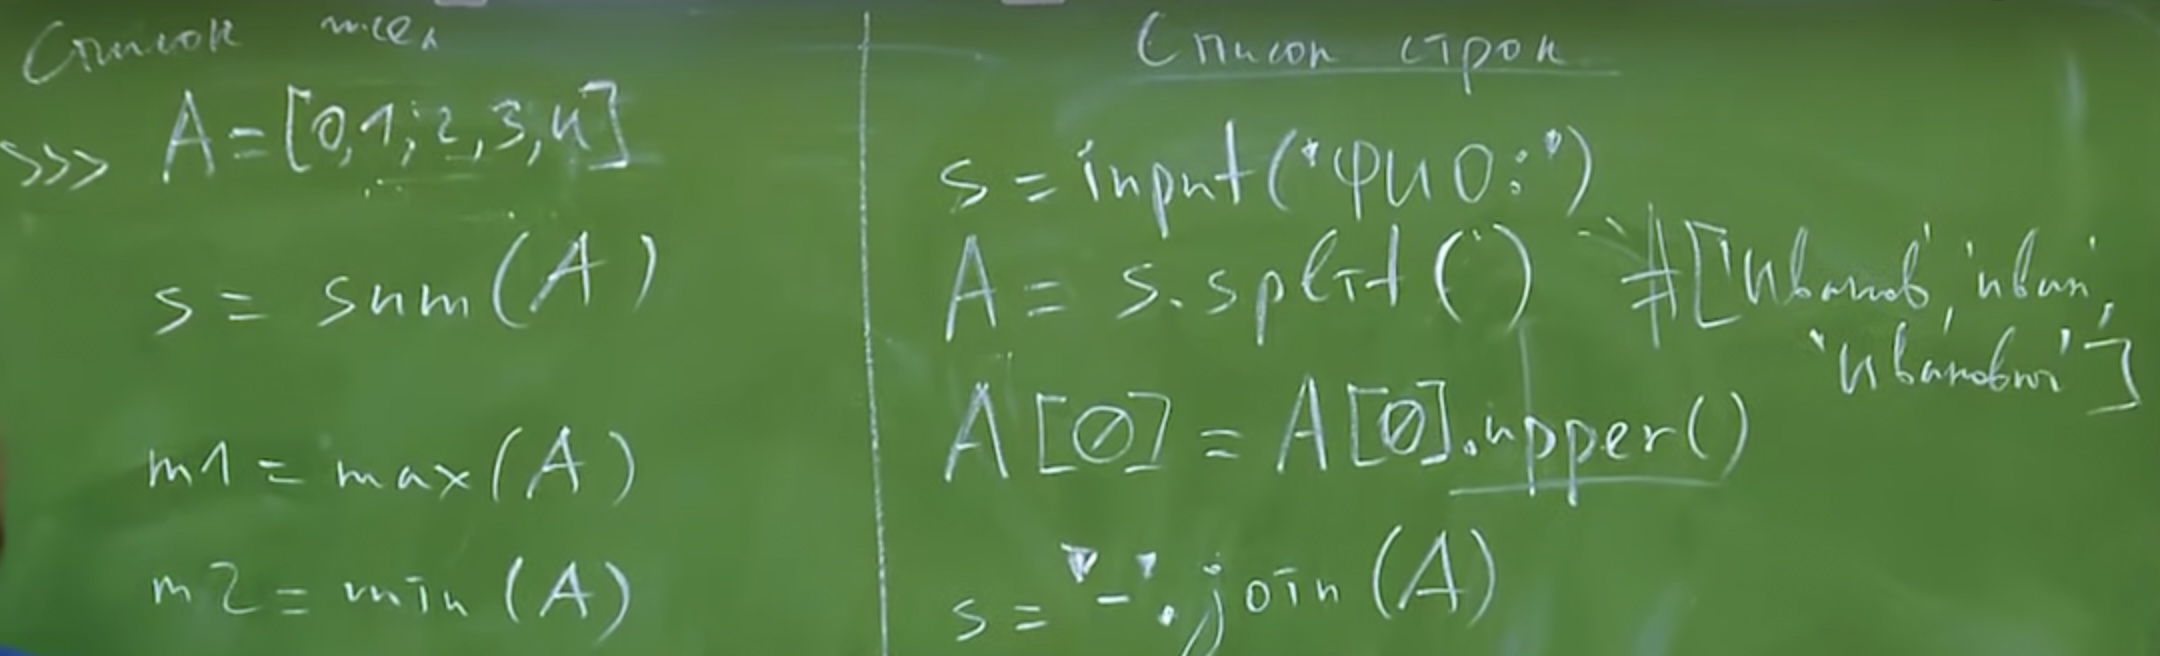 Список чисел
>>> A=[0,1,2,3,4]
s = sum(A)
m1 = max(A)
m2 = min(A)
Список строк
s = input('ФИО:')
A = s.split() #['Иванов','иван',
'Иванович']
A[0] = A[0].upper()
s = '-'.join(A)